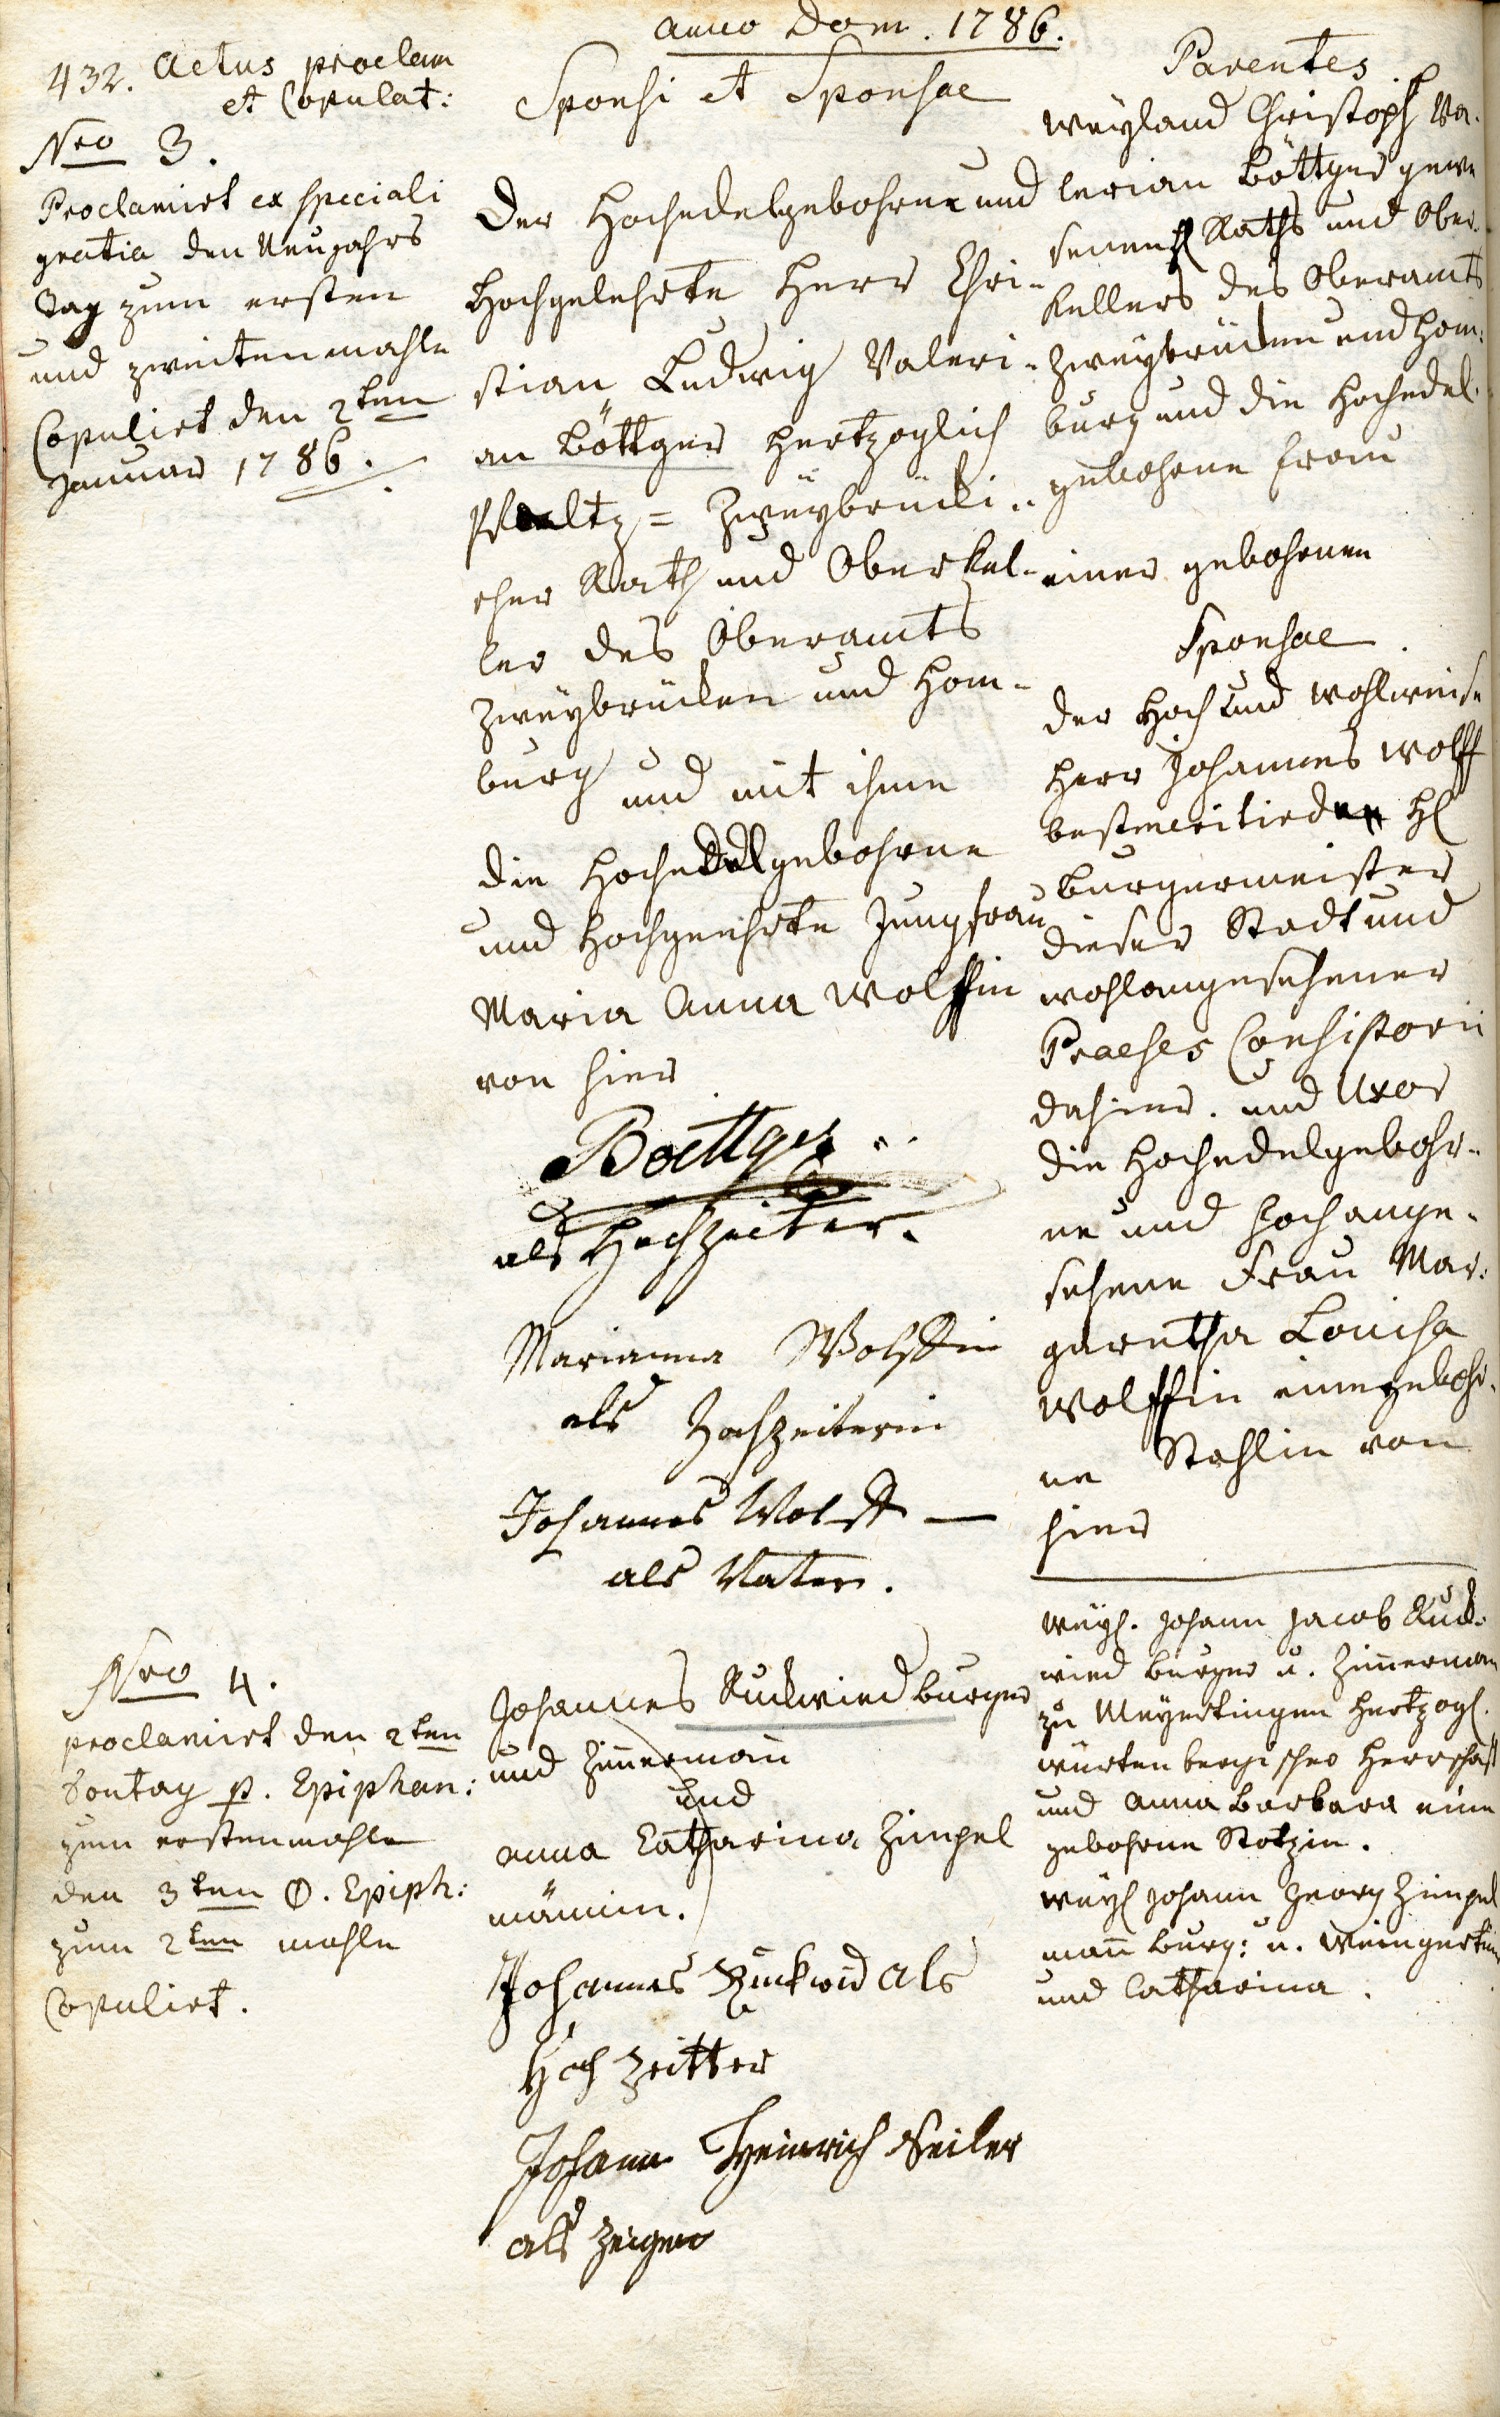 Anno Dom. 1786.
432. Actus proclam
et Copulat:
Nro 3.
Proclamirt ex speciali
gratia den Neujahrs
Tag zum ersten
und zweitenmahle
Copulirt den 2ten
Januar 1786.
Sponsi et Sponsae
Der Hochedelgebohrne und
Hochgelehrte Herr Chri-
stian Ludwig Valeri-
an Böttger Hertzoglich
Pfaltz= Zweybrücki-
cher Rath und Oberkel-
ler des Oberamts
Zweybrücken und Hom-
burg und mit ihme
die Hochedelgebohrne
und Hochgeehrte Jungfrau
Maria Anna Wolffin
von hier
Boettger
als Hochzeiter.
Marianna Wolffin
als Hochzeiterin
Johannes Wolff
als Vater.
Parentes
weyland Christoph Va-
lerian Böttger gewe
senen Raths und Ober-
kellers des Oberamts
Zweybrücken und Hom-
burg und die Hochedel-
gebohrne Frau
einer gebohrnen
Sponsae
der Hoch und Wohlweise
Herr Johannes Wolff
bestmeritirder H
Burgermeister
dieser Stadt und
wohlangesehener
Praeses Consistorii
dahier. und Uxor
die Hochedelgebohr-
ne und hochange-
sehene Frau Mar-
garetha Louisa
Wolffin eine gebohr-
ne Stahlin von
hier
Nro 4.
proclamirt den 2ten
Sontag p. Epiphan:
zum erstenmahle
den 3ten p. Epiph:
zum 2ten mahle
Copulirt.
Johannes Ruckwied burger
und Zimmermann
und
Anna Catharina Zimpel
männin.
Johannes Ruckwid als
Hoch zeitter
Johann Heinrich Seiler
als Zeigen
weyl. Johann Jacob Ruck-
wied Burger u. Zimmerman
zu Hertzogl.
würtenbergischer Herrschafft
und Anna Barbara eine
gebohrne Stotzin.
weyl Johann Georg Zimpel
mann Burg: u. Weingertsm
und Catharina.